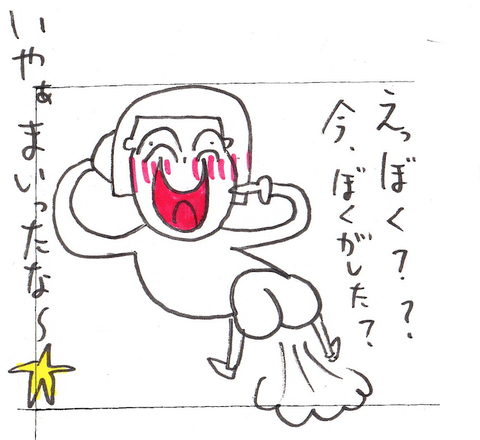 えっぼく？？
今、ぼくがした？
いやぁまいったな〜